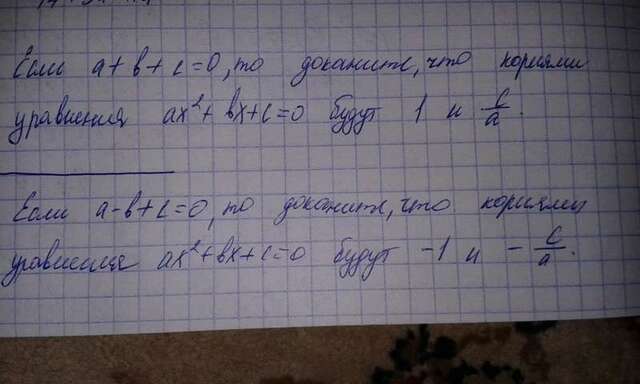 Если a+b+c=0, то докажите, что корнями
уравнения ax²+bx+c=0 будут 1 и c/a.
Если a-b+c=0, то докажите, что корнями
уравнения ax²+bx+c=0 будут -1 и -c/a.